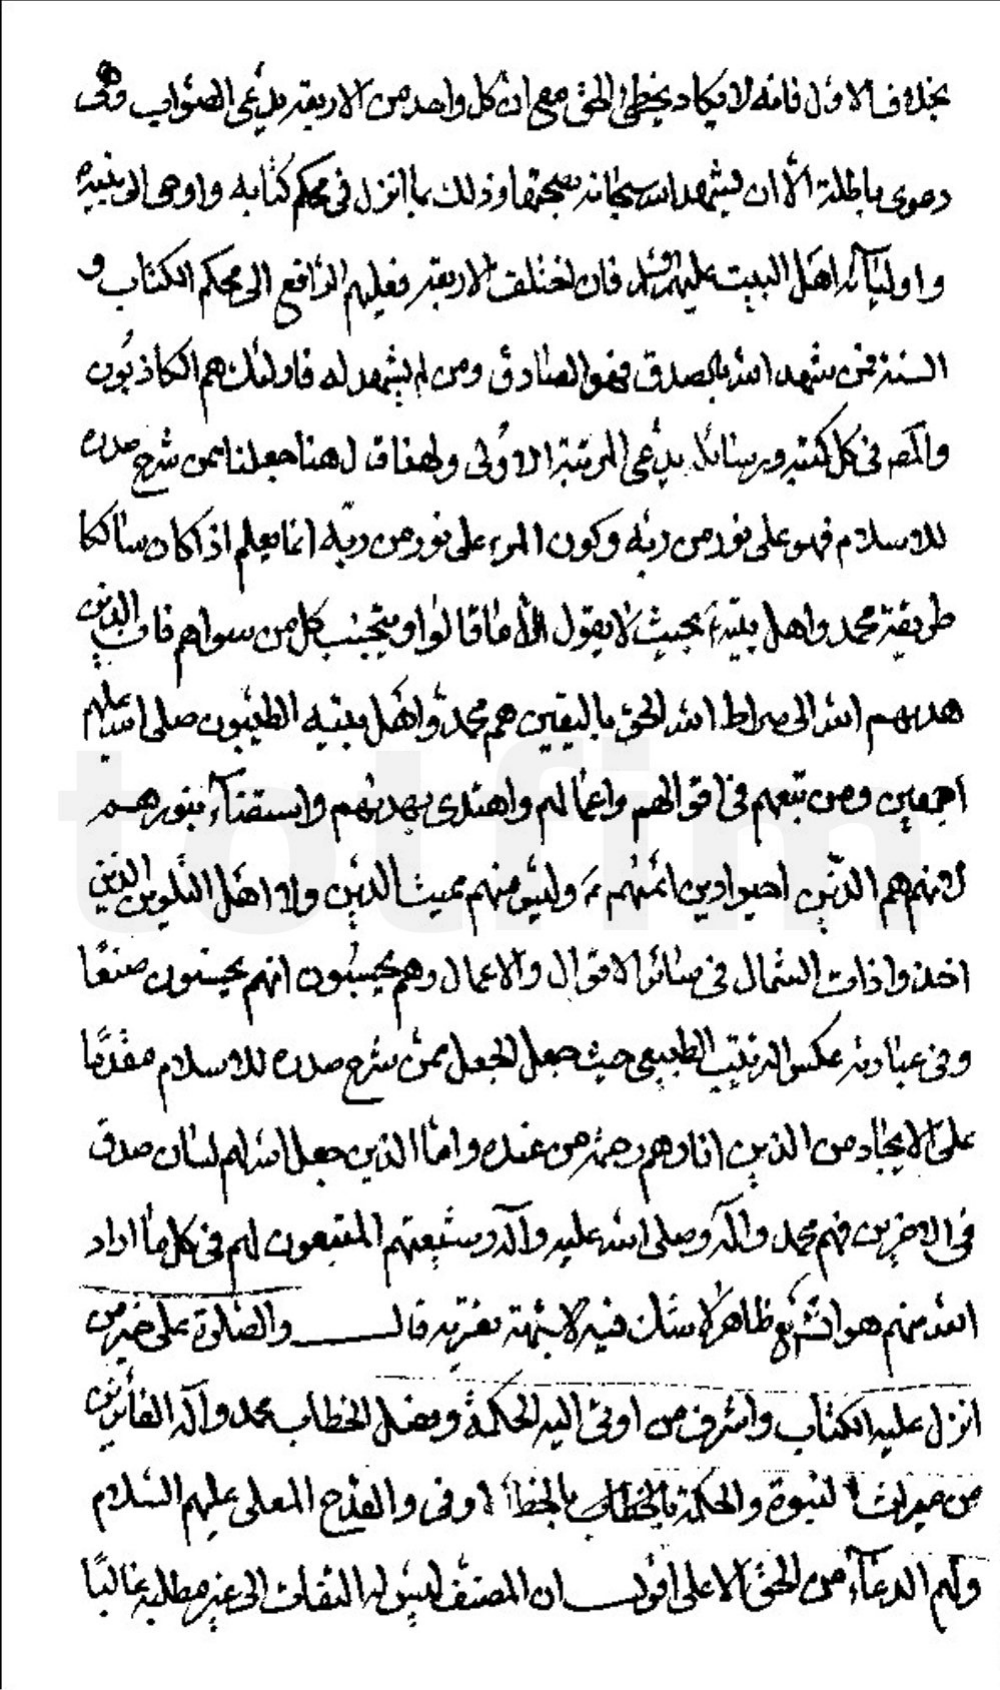 بخلاف الاول فانه لا يكاد يخطى الحق مع ان كل واحد من الاربعة يدّعى الصّواب وكل
دعوى باطلة الّا ان يشهد الله سبحانه بصحتها وذلك بما انزل فى محكم كتابه واوحى الى نبيّه
واوليائه اهل البيت عليهم السّلم فان اختلف الاربعة فعليهم الترافع الى محكم الكتاب و
السنة فمن شهد الله بالصدق فهو الصادق ومن لم يشهد له فاولئك هم الكاذبون
والمص فى كل كتبه ورسائله يدّعى المرتبة الاولى ولهذا قال هنا جعلنا ممن شرح صدره
للاسلام فهو على نور من ربّه وكون المرء على نور من ربّه انما يعلم اذا كان سالكا
طريقة محمد واهل بيته بحيث لا يقول الّا ما قالوا ويتجنب كل من سواهم فان الذين
هديهم الله الى صراط الله الحق باليقين هم محمد واهل بيته الطيّبون صلى الله عليهم
اجمعين ومن تبعهم فى اقوالهم واعمالهم واهتدى بهديهم واستضاء بنورهم
لانهم هم الذين احيوا دين ائمتهم ع وليس منهم مميت الدين ولا اهل التلوين الذين
اخذوا ذات الشمال فى سائر الاقوال والاعمال وهم يحسبون انهم يحسنون صنعًا
وفى عبارته عكس الترتيب الطبيعى حيث جعل الجعل ممن شرح صدره للاسلام مقدمًا
على الايجاد من الذين اتاهم رحمة من عنده وامّا الذين جعل الله لهم لسان صدق
فى الاخرين فهم محمد وآله صلى الله عليه وآله وشيعتهم المتبعون لهم فى كل ما اراد
الله منهم هو انتم تبع ظاهر لا شك فيه لا شبهة تعتريه قال والصّلوة على خير من
انزل عليه الكتاب واشرف من اوتى اليه الحكمة وفصل الخطاب محمد وآله الفائزين
من ميراث النبوة والحكمة بالخطاب بالحظ الاوفى والقدح المعلى عليهم السّلام
ولهم الدعاء من الحق الاعلى اقول ان المصنّف ليس له التفات الى غير مطلبه غالبًا